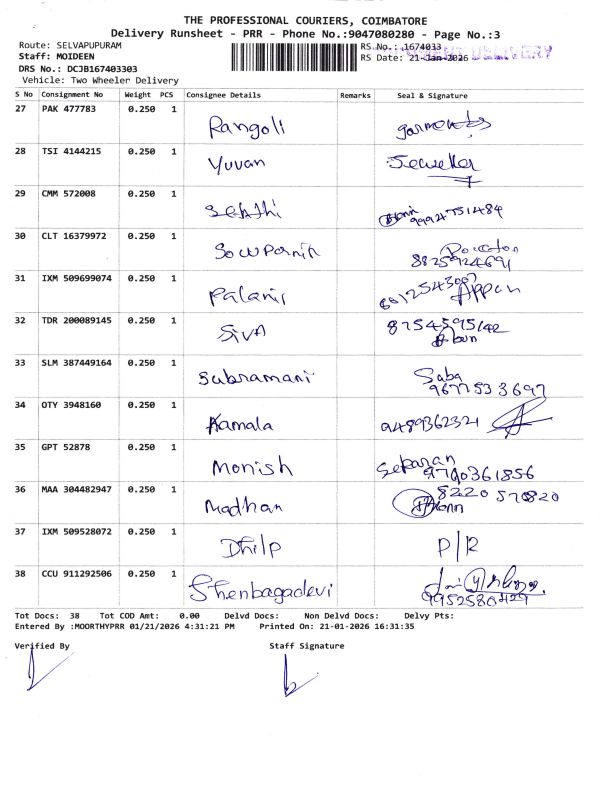 THE PROFESSIONAL COURIERS, COIMBATORE
Delivery Runsheet - PRR - Phone No.:9047080280 - Page No.:3
Route: SELVAPUPURAM
RS No.: 1674033
Staff: MOIDEEN
RS Date: 21-Jan-2026
DELIVERY
DRS No.: DCJB167403303
Vehicle: Two Wheeler Delivery
S No Consignment No Weight PCS Consignee Details Remarks Seal & Signature
27 PAK 477783 0.250 1 Rangoli garments
28 TSI 4144215 0.250 1 Yuvan Jeweller
29 CMM 572008 0.250 1 Sakthi
9994751484
30 CLT 16379972 0.250 1 Sowparnik
8825924691
31 IXM 509699074 0.250 1 Palani Appen
32 TDR 200089145 0.250 1 Siva
33 SLM 387449164 0.250 1 Subramani Saba
9677533697
34 OTY 3948160 0.250 1 Kamala 9489362321
35 GPT 52878 0.250 1 Monish Sekaran
9790361856
36 MAA 304482947 0.250 1 Madhan 8220570820
37 IXM 509528072 0.250 1 Dhilp P/R
38 CCU 911292506 0.250 1 Shenbagadevi
9952580429
Tot Docs: 38 Tot COD Amt: 0.00 Delvd Docs: Non Delvd Docs: Delvy Pts:
Entered By :MOORTHYPRR 01/21/2026 4:31:21 PM Printed On: 21-01-2026 16:31:35
Verified By Staff Signature